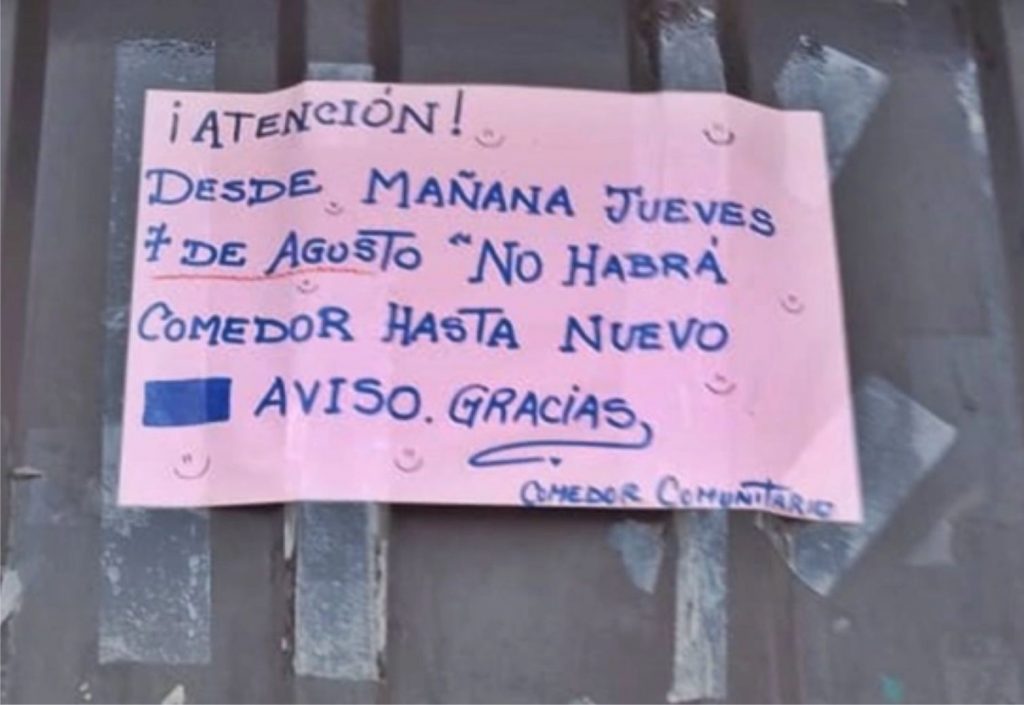 ¡ATENCIÓN!
DESDE MAÑANA JUEVES
7 DE AGOSTO "NO HABRÁ
COMEDOR HASTA NUEVO
AVISO. GRACIAS,
COMEDOR COMUNITARIO